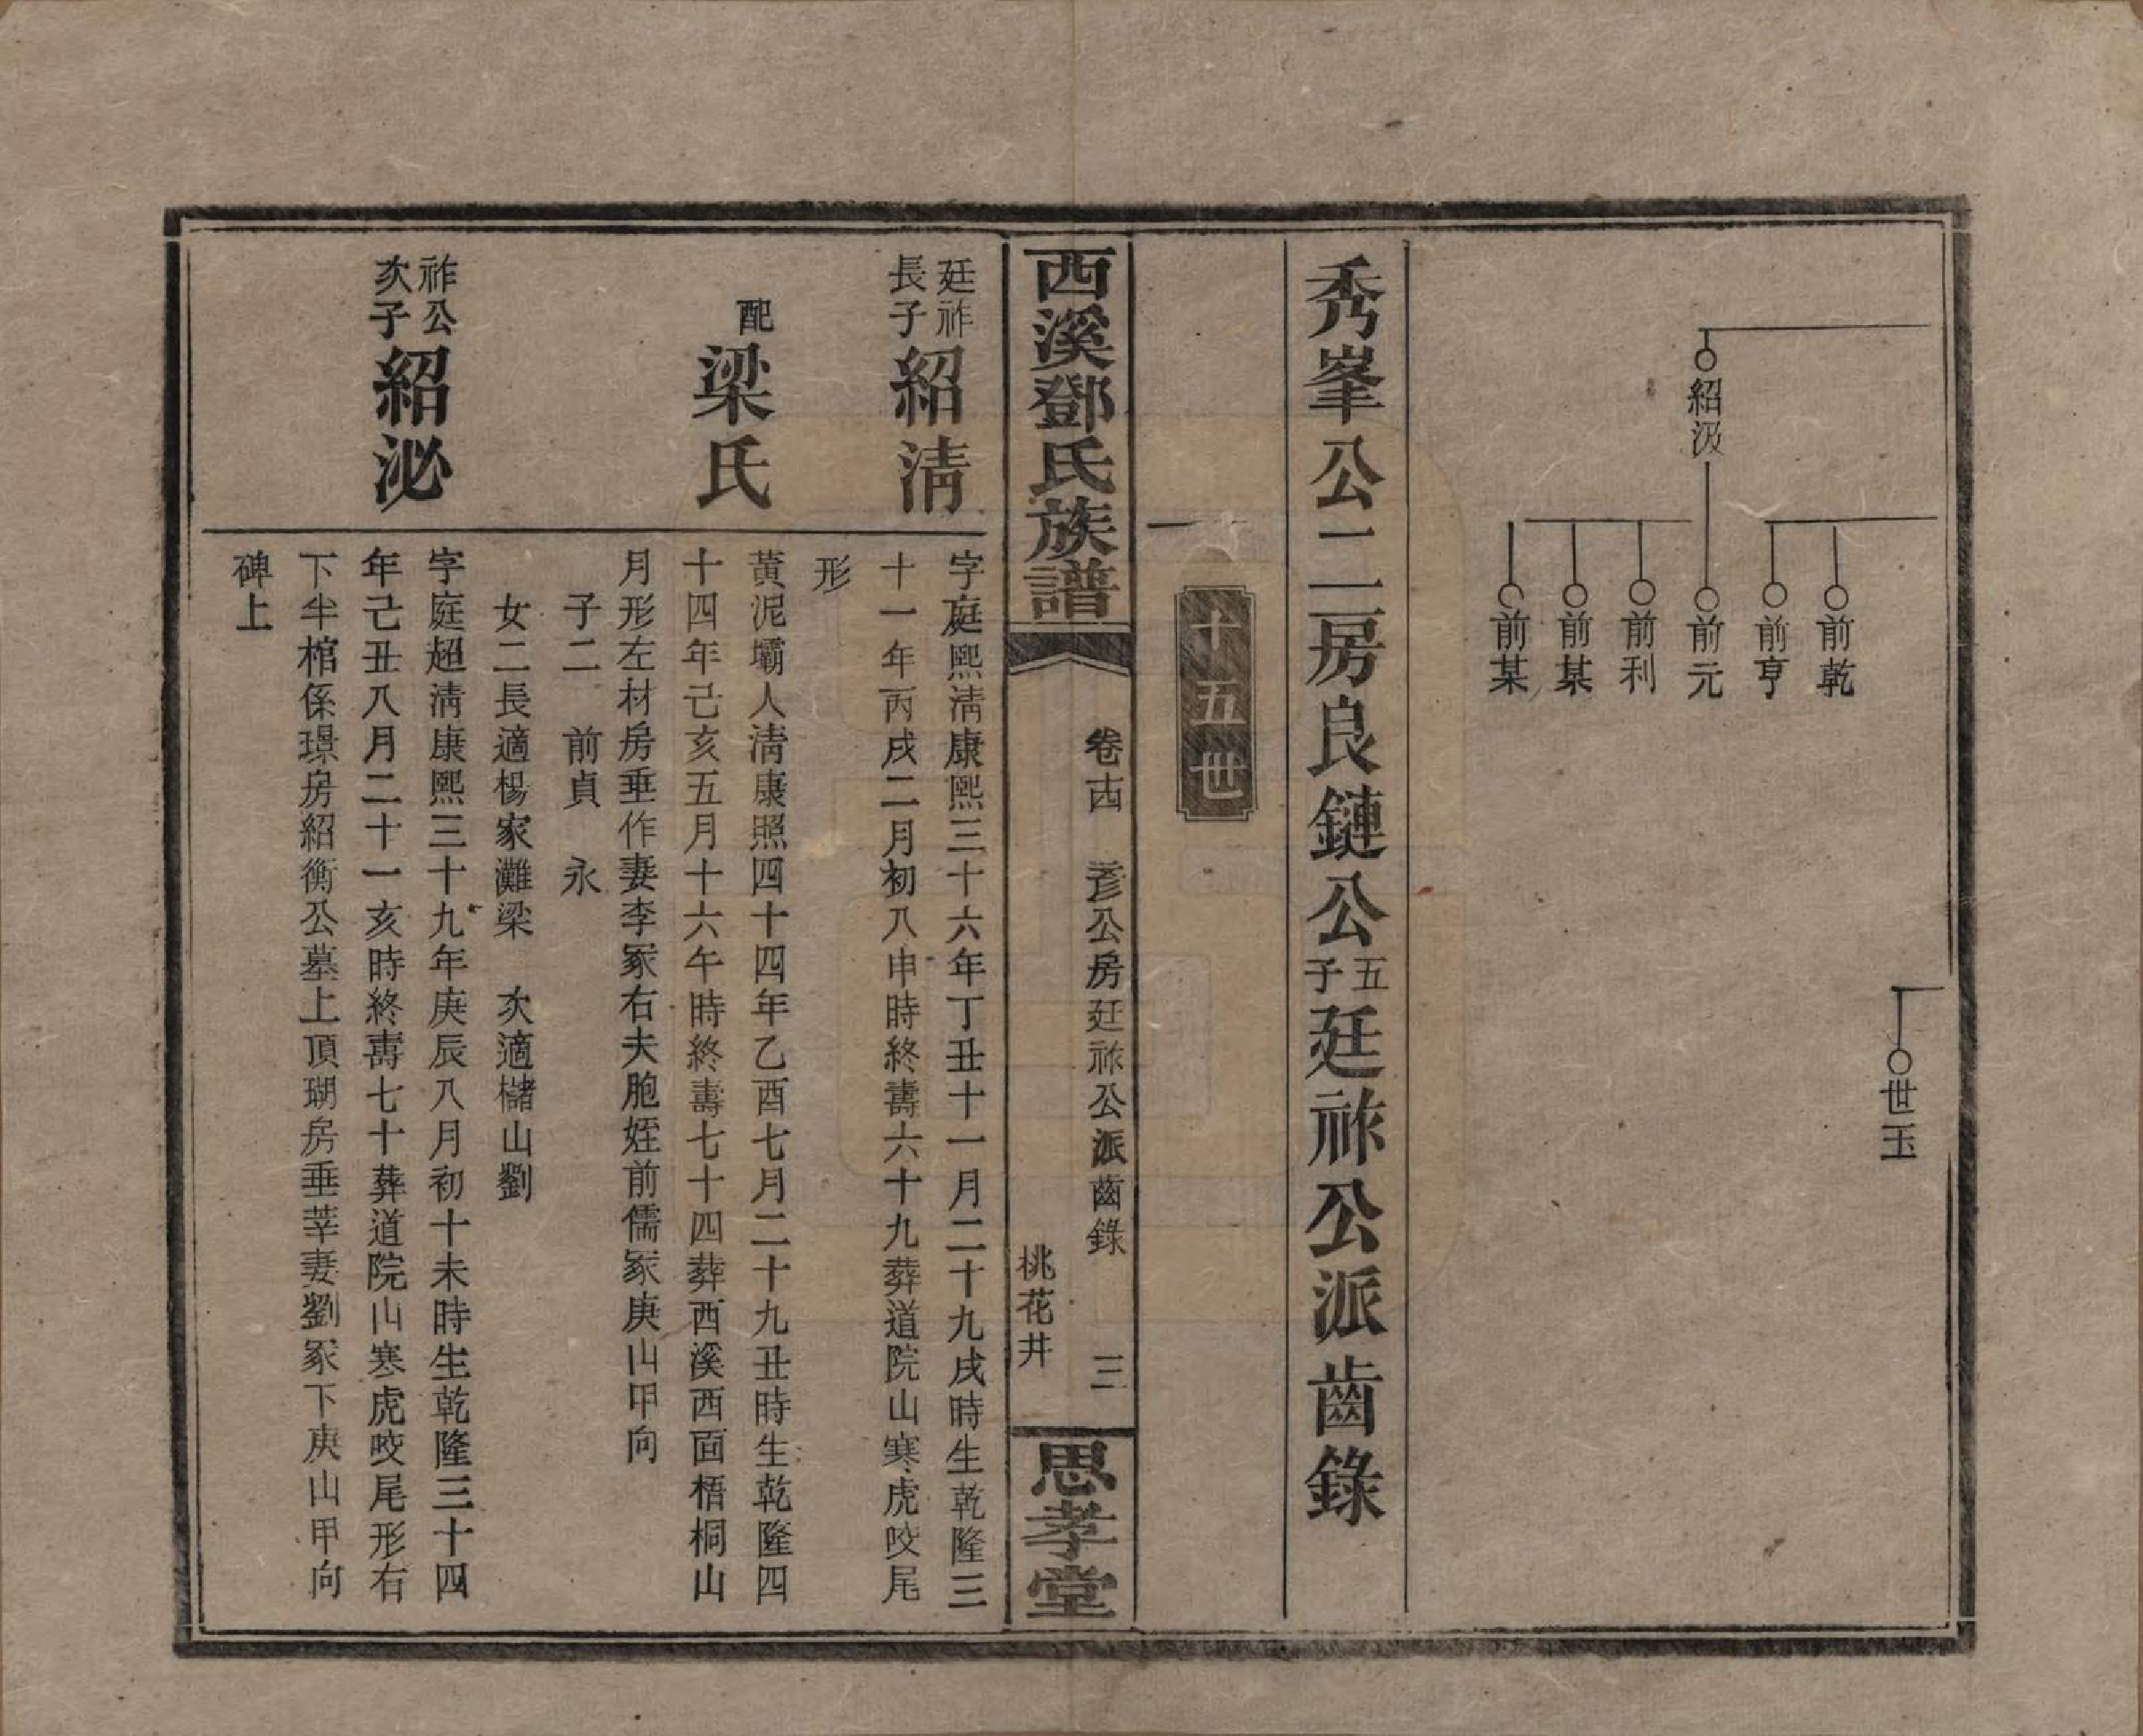 世玉
前乾
前亨
紹汲
前元
前利
前某
前某
秀峯公二房良鏈公五子廷祚公派齒錄
十五世
西溪鄧氏族譜
卷十四 彥公房廷祚公派齒錄 三
桃花井
思孝堂
廷祚長子紹淸
字庭熙淸康熙三十六年丁丑十一月二十九戌時生乾隆三
十一年丙戌二月初八申時終壽六十九葬道院山寒虎咬尾
形
配梁氏
黃泥壩人淸康照四十四年乙酉七月二十九丑時生乾隆四
十四年己亥五月十六午時終壽七十四葬西溪西面梧桐山
月形左材房垂作妻李冢右夫胞姪前儒冢庚山甲向
子二 前貞 永
女二長適楊家灘梁 次適櫧山劉
祚公次子紹泌
字庭超淸康熙三十九年庚辰八月初十未時生乾隆三十四
年己丑八月二十一亥時終壽七十葬道院山寒虎咬尾形右
下半棺係璟房紹衡公墓上頂瑚房垂莘妻劉冢下庚山甲向
碑上